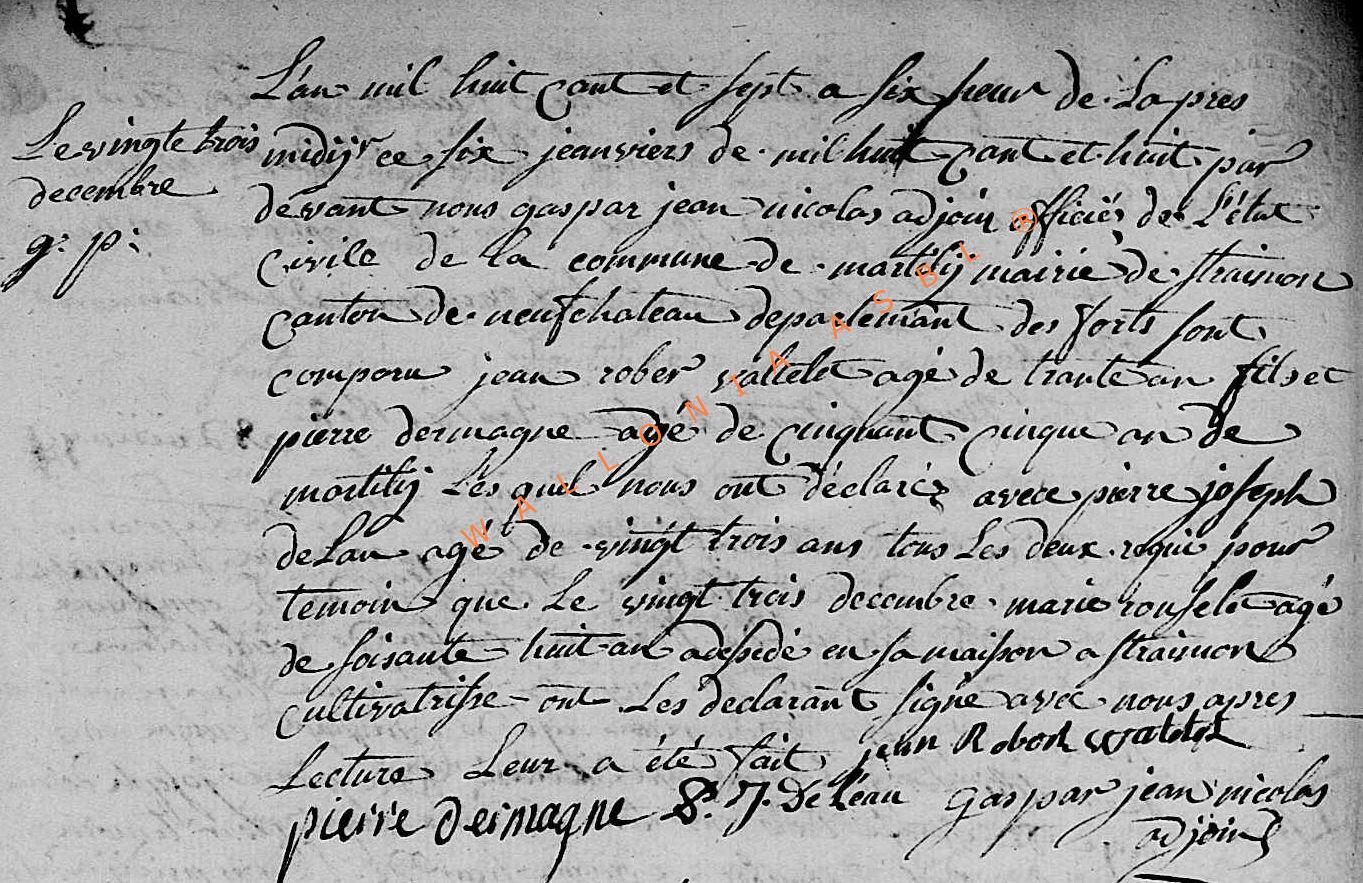 Le vingte trois
decembre
g. p.
L'an mil huit cant et sept a six heur de Lapres
midÿ ce six jeanviers de mil huit cant et huit par
devant nous gaspar jean nicolas adjoin officiér de L'état
civile de la commune de martilÿ mairie de straimon
canton de neufchateau departemant des forts sont
comporu jean rober valtelet agé de trante an fils et
pierre dermagne agé de cinquant cinque an de
martilÿ Les quel nous ont déclaréz avece pierre joseph
delau agé de vingt trois ans tous Les deux requi pour
temoin que Le vingt trois decembre marie rouselet agé
de soisante huit an adessedé en sa maison a straimon
cultivatrisse ont Les declarant signe avec nous apres
Lecture Leur a été fait jean Robert
pierre dermagne J. DeLeau gaspar jean nicolas
adjoin
WALLONIA ASBL ®